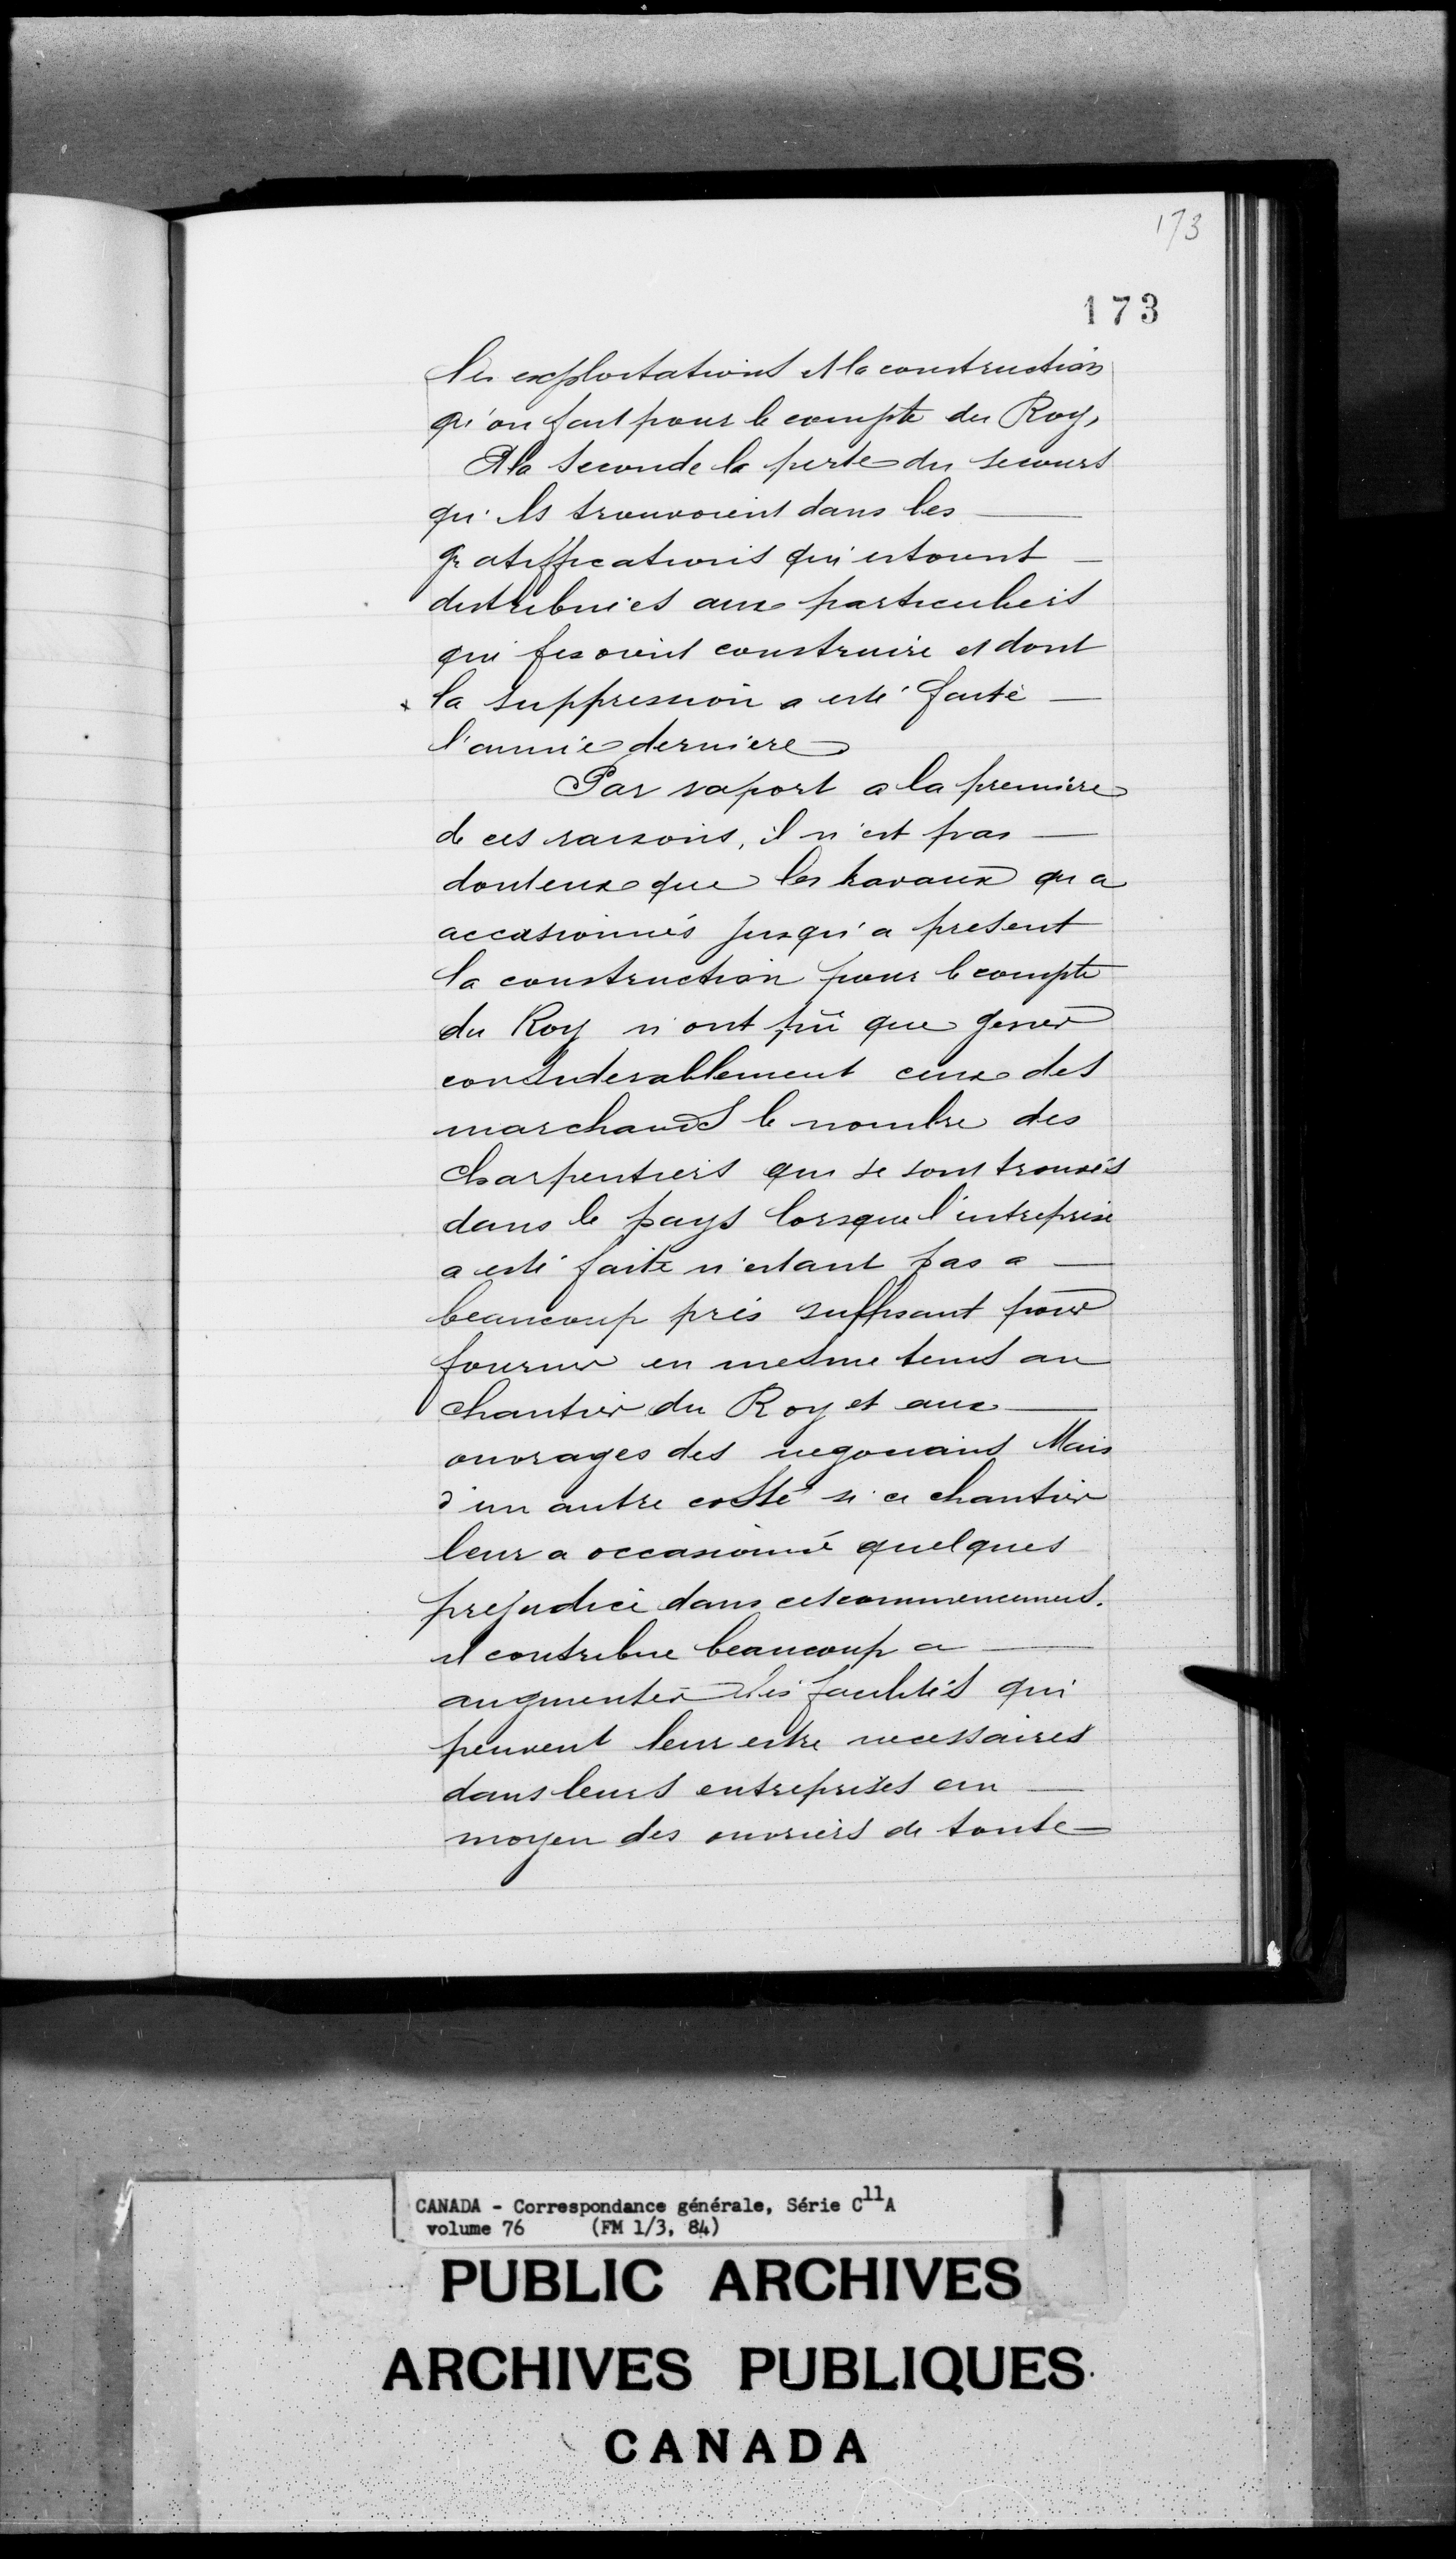 173
173
les exploitations et la construction
qu'on fait pour le compte du Roy,
Et la seconde la perte du secours
qu'ils trouvoient dans les
gratiffications qui estoient
distribuiés aux particuliers
qui fesoient construire et dont
la suppression a esté faite
l'année derniere
Par raport a la premiere
de ces raisons, il n'est pas
douteux que les travaux qu'a
accasionnés jusqu'a present
la construction pour le compte
du Roy n'ont pû que gener
considerablement ceux des
marchands le nombre des
charpentiers qui se sont trouvés
dans le pays lorsque l'entreprise
a esté faite n'estant pas a
beaucoup prés suffisant pour
fournir en mesme tems au
chantier du Roy et aux
ouvrages des negocians Mais
d'un autre costé si ce chantier
leur a occasionné quelques
prejudice dans ces commencemens.
il contribue beaucoup a
augmenter les facilités qui
peuvent leur estre necessaires
dans leurs entreprises au
moyen des ouvriers de toute
CANADA - Correspondance générale, Série C11A
volume 76 (FM 1/3, 84)
PUBLIC ARCHIVES
ARCHIVES PUBLIQUES
CANADA